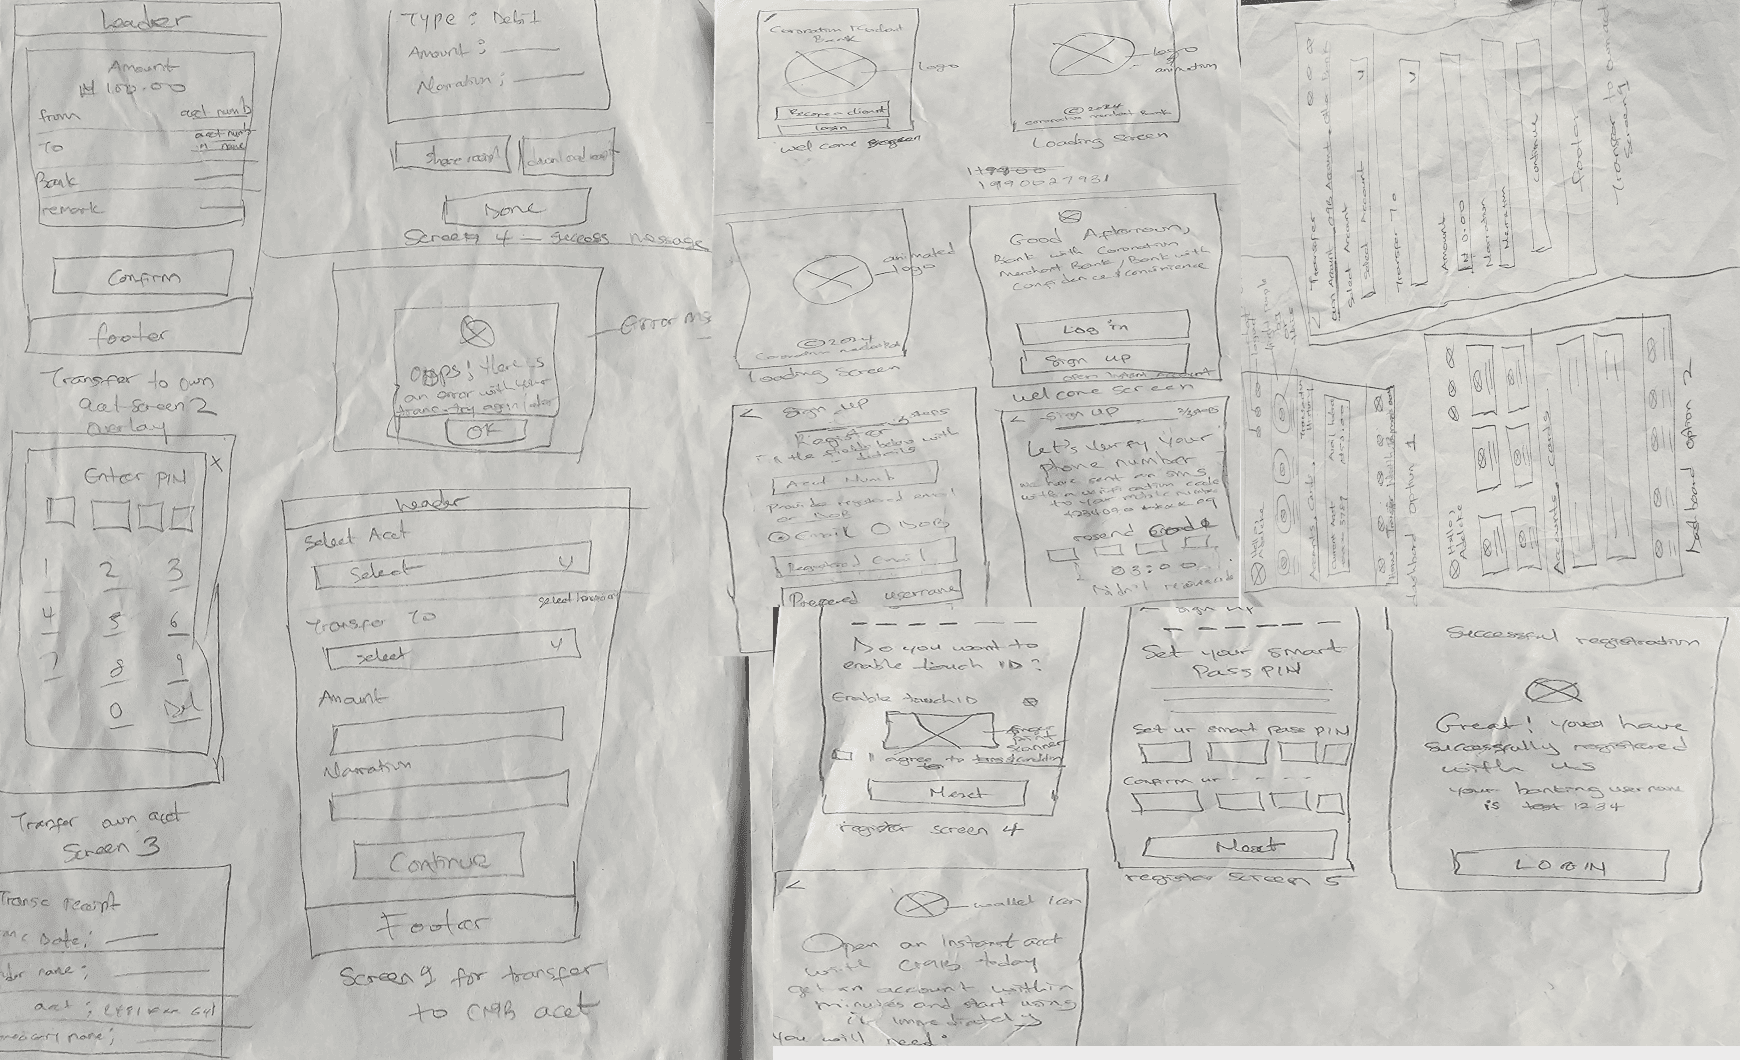 header
Amount
₦ 100.00
from acct numb
To acct numb
name
Bank
remark
Confirm
footer
Transfer to own
acct screen 2
overlay
X
Enter PIN
1 2 3
4 5 6
7 8 9
0 Del
Transfer own acct
Screen 3
Transc receipt
Date;
name;
acct;
name;
TYPE : Debit
Amount;
Narration;
Share receipt
download receipt
Done
Screen 4 – success message
Error ms
oops! there is
an error with your
try again later
OK
header
Select Acct
Select
Transfer To
Select
Amount
Narration
Continue
Footer
Screen 1 for transfer
to CMB acct
Coronation Merchant
Bank
logo
Become a client
login
welcome screen
logo
animation
© 2024
Coronation merchant Bank
Loading Screen
1990027931
animated
logo
© 2024
Coronation
Loading Screen
Good Afternoon,
Bank with Coronation
Merchant Bank, Bank with
Confidence & convinience
Log in
Sign up
open instant account
welcome screen
< Sign up
steps
Register
the fields below with
details
Acct Numb
Provide registered email
or DOB
Email DOB
Registered Email
Prefered username
< Sign up
Let's verify your
phone number
we have sent an sms
with a verification code
to your mobile number
resend code
03:00
Didn't receive code
Do you want to
enable touch ID?
Enable touch ID
finger
print
scanner
I agree to terms & condition
Next
register screen 4
← Sign up
Set your smart
Pass PIN
Set ur smart pass PIN
Confirm ur - - - - -
Next
register screen 5
Successful registration
Great! you have
successfully registered
with us
your banking username
is test 1234
LOGIN
<
wallet icon
Open an instant acct
with CMB today
get an account within
minutes and start using
it immediately
you will need:
Transfer
Select Account
Select Account
Transfer To
Amount
₦ 0.00
Narration
Narration
Continue
footer
Transfer to own acct
Screen 1
Hello,
Adelike
Accounts, Cards,
dashboard option 1
Hello,
Adelike
Accounts, cards
Dashboard option 2